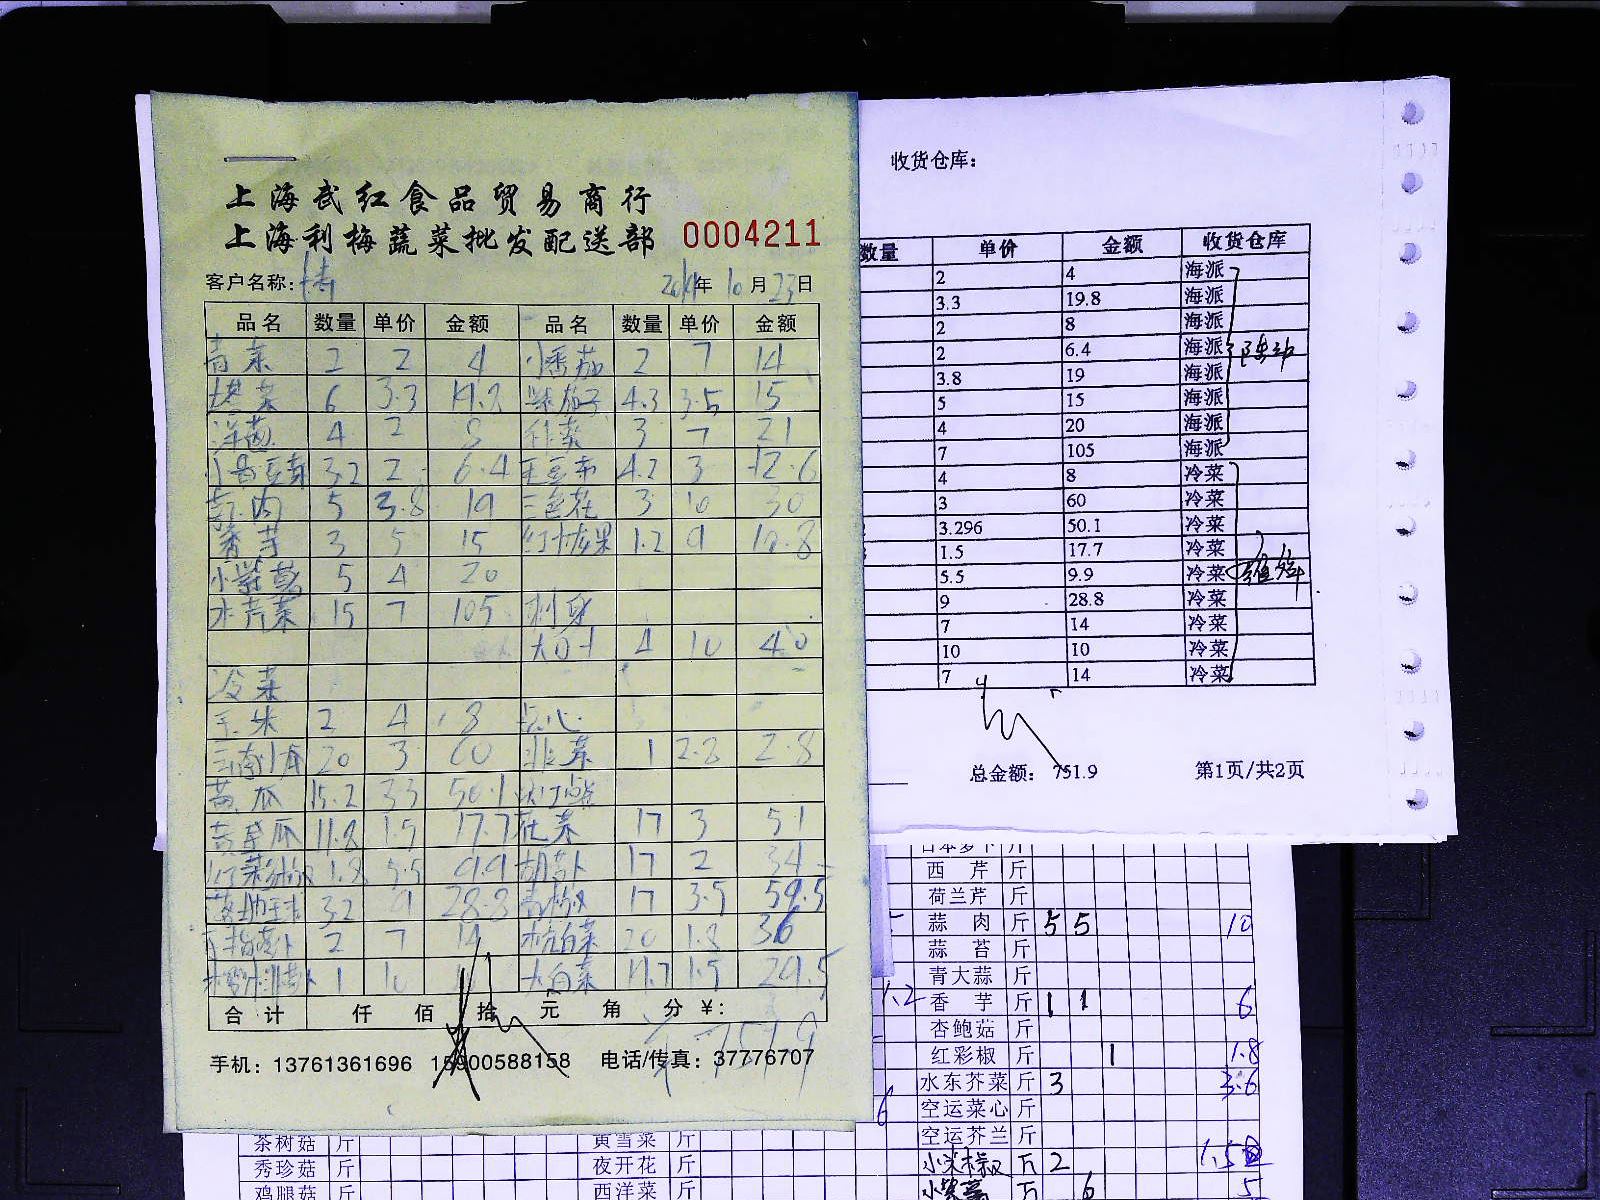 上海武红食品贸易商行
上海利梅蔬菜批发配送部 0004211
客户名称: 年 10 月 23 日
品名 数量 单价 金额 品名 数量 单价 金额
青菜 2 2 4 小番茄 2 7 14
塔菜 6 3.3 19.8 茄子 4.3 3.5 15
洋葱 4 2 8 3 7 21
3.2 2 6.4 4.2 3 12.6
肉 5 3.8 19 三色花 3 10 30
香芋 3 5 15 红火龙果 1.2 9 10.8
小紫茄 5 4 20
水芹菜 15 7 105 刺身
4 10 40
冷菜
玉米 2 4 8 点心
20 3 60 韭菜 1 2.8 2.8
黄瓜 15.2 3.3 50.1
瓜 11.8 1.5 17.7 花菜 17 3 51
1.8 5.5 9.9 胡萝卜 17 2 34
3.2 9 28.8 青椒 17 3.5 59.5
2 7 14 杭白菜 20 1.8 36
1 10 大白菜 19.7 1.5 29.5
合计 仟 佰 拾 元 角 分 ¥:
751.9
手机: 13761361696 15900588158 电话/传真: 37776707
收货仓库:
数量 单价 金额 收货仓库
2 4 海派
3.3 19.8 海派
2 8 海派
2 6.4 海派
3.8 19 海派
5 15 海派
4 20 海派
7 105 海派
4 8 冷菜
3 60 冷菜
3.296 50.1 冷菜
1.5 17.7 冷菜
5.5 9.9 冷菜
9 28.8 冷菜
7 14 冷菜
10 10 冷菜
7 14 冷菜
总金额: 751.9 第1页/共2页
日本萝卜 斤
西芹 斤
荷兰芹 斤
蒜肉 斤 5 5 10
蒜苔 斤
青大蒜 斤
1.2 香芋 斤 1 1 6
杏鲍菇 斤
红彩椒 斤 1 1.8
水东芥菜 斤 3 3.6
6 空运菜心 斤
空运芥兰 斤
小尖椒 斤 2
小紫茄 斤 6 5
茶树菇 斤 黄雪菜 斤
秀珍菇 斤 夜开花 斤
鸡腿菇 斤 西洋菜 斤